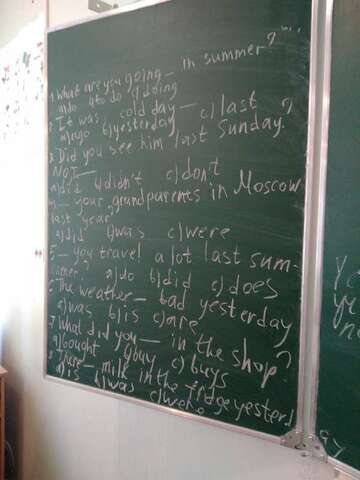 1. What are you going — in summer?
a) do b) to do c) doing
2. It was cold day —
a) ago b) yesterday c) last
3. Did you see him last Sunday?
No, I —
a) did b) didn't c) don't
4. — your grandparents in Moscow
last year
a) did b) was c) were
5 — you travel a lot last sum-
mer? a) do b) did c) does
6 The weather — bad yesterday
a) was b) is c) are
7 What did you — in the shop?
a) bought b) buy c) buys
8 There — milk in the fridge yesterday
a) is b) was c) were